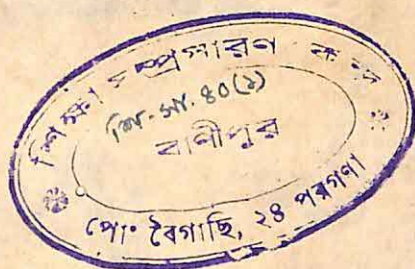 শিক্ষা সম্প্রসারণ কেন্দ্র
শি. সং. ৪০(১)
বাণীপুর
পোঃ বৈগাছি, ২৪ পরগণা